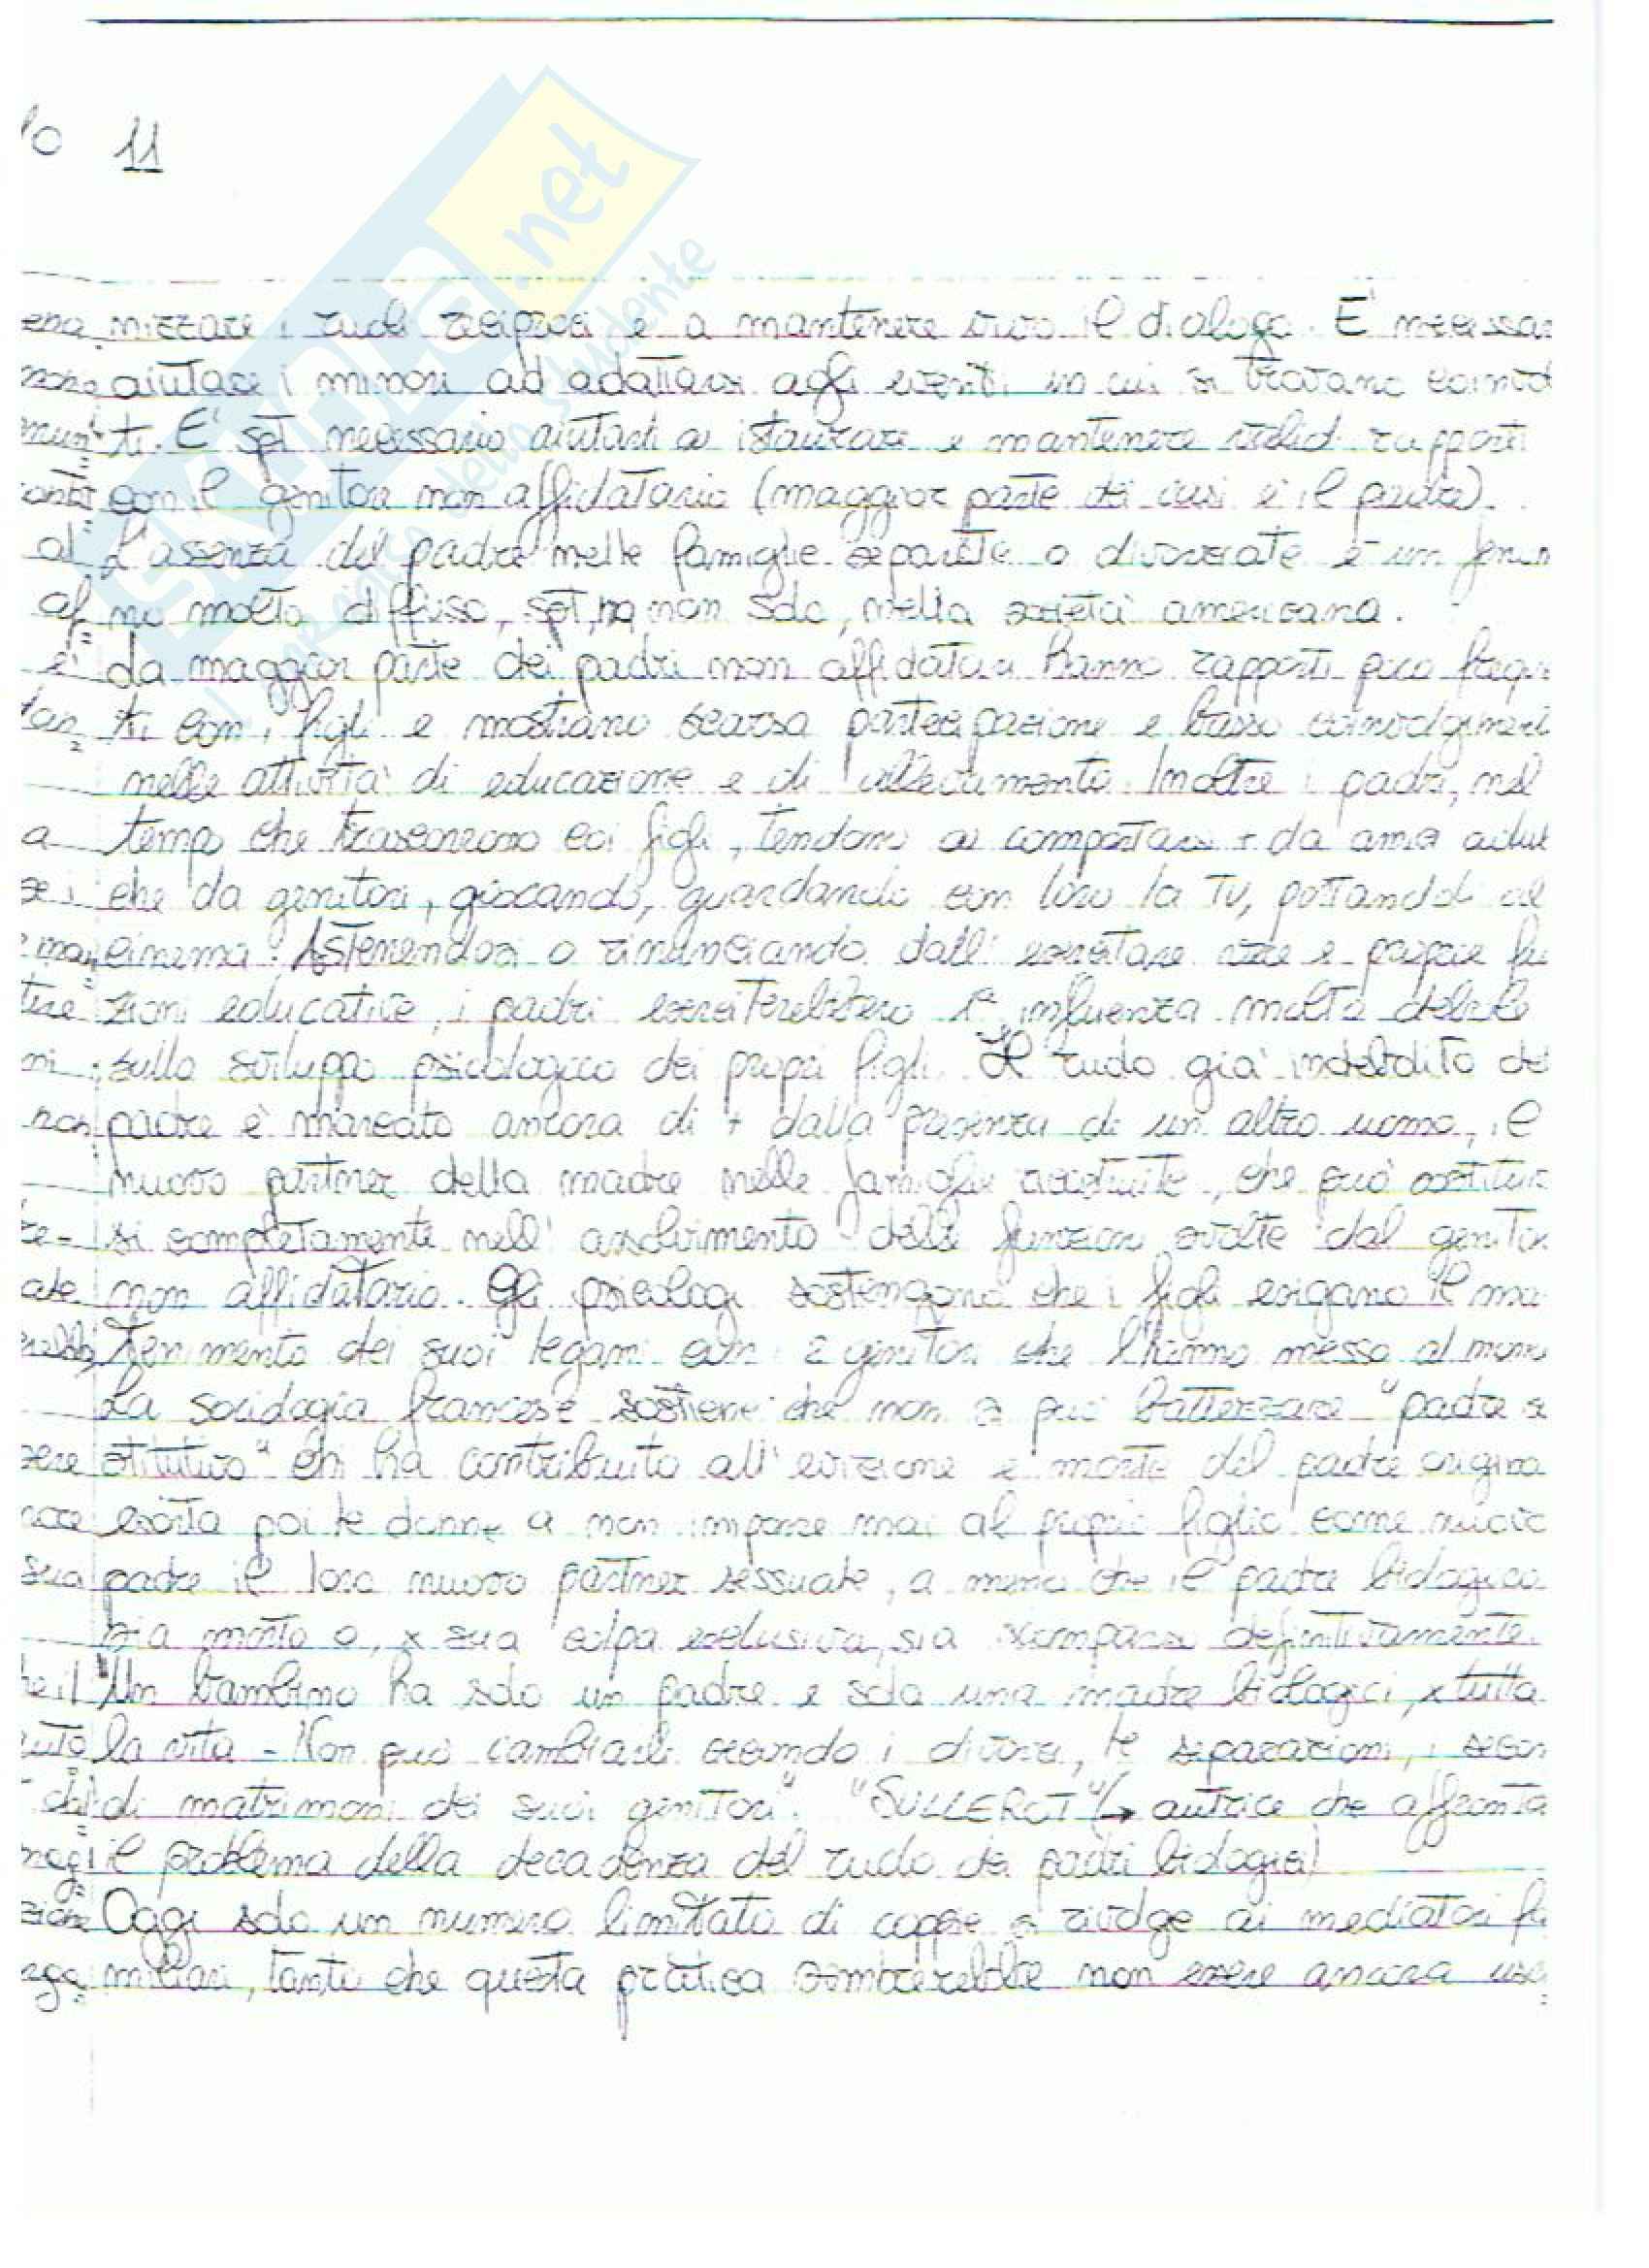 lo 11
SKUOLA.net
mizzare i ruoli reciproci e a mantenere vivo il dialogo. E' necessa
aiutare i minori ad adattarsi agli eventi in cui si trovano coinvol
ti. E' spt necessario aiutarli a istaurare e mantenere validi rapporti
con il genitore non affidatario (maggior parte dei casi è il padre).
al L'assenza del padre nelle famiglie separate o divorziate è un fenom
no molto diffuso, spt, ma non solo, nella società americana.
è La maggior parte dei padri non affidatari hanno rapporti poco freque
ti con i figli e mostrano scarsa partecipazione e basso coinvolgiment
nelle attività di educazione e di allevamento. Inoltre i padri, nel
a tempo che trascorrono coi figli, tendono a comportarsi + da amici adul
che da genitori, giocando, guardando con loro la TV, portandoli al
cinema. Astenendosi o rinunciando dall'esercitare vere e proprie fu
zioni educative, i padri eserciterebbero 1a influenza molto debole
sullo sviluppo psicologico dei propri figli. Il ruolo già indebolito del
padre è marcato ancora di + dalla presenza di un altro uomo, il
nuovo partner della madre nelle famiglie ricostruite, che può sostitui
si completamente nell'assolvimento delle funzioni svolte dal genitor
non affidatario. Gli psicologi sostengono che i figli esigano il ma
tenimento dei suoi legami con i 2 genitori che l'hanno messo al mon
La sociologia francese sostiene che non si può battezzare "padre so
stitutivo" chi ha contribuito all'evizione e morte del padre origina
esorta poi le donne a non imporre mai al proprio figlio come nuovo
sua padre il loro nuovo partner sessuale, a meno che il padre biologico
sia morto o, x sua colpa esclusiva, sia scomparso definitivamente.
"Un bambino ha solo un padre e solo una madre biologici, x tutta
la vita - Non può cambiarli secondo i divorzi, le separazioni, i secon
di matrimoni dei suoi genitori". "SULLEROT" (→ autrice che affronta
il problema della decadenza del ruolo dei padri biologici)
Oggi solo un numero limitato di coppie si rivolge ai mediatori fa
miliari, tanto che questa pratica sembrerebbe non essere ancora usc